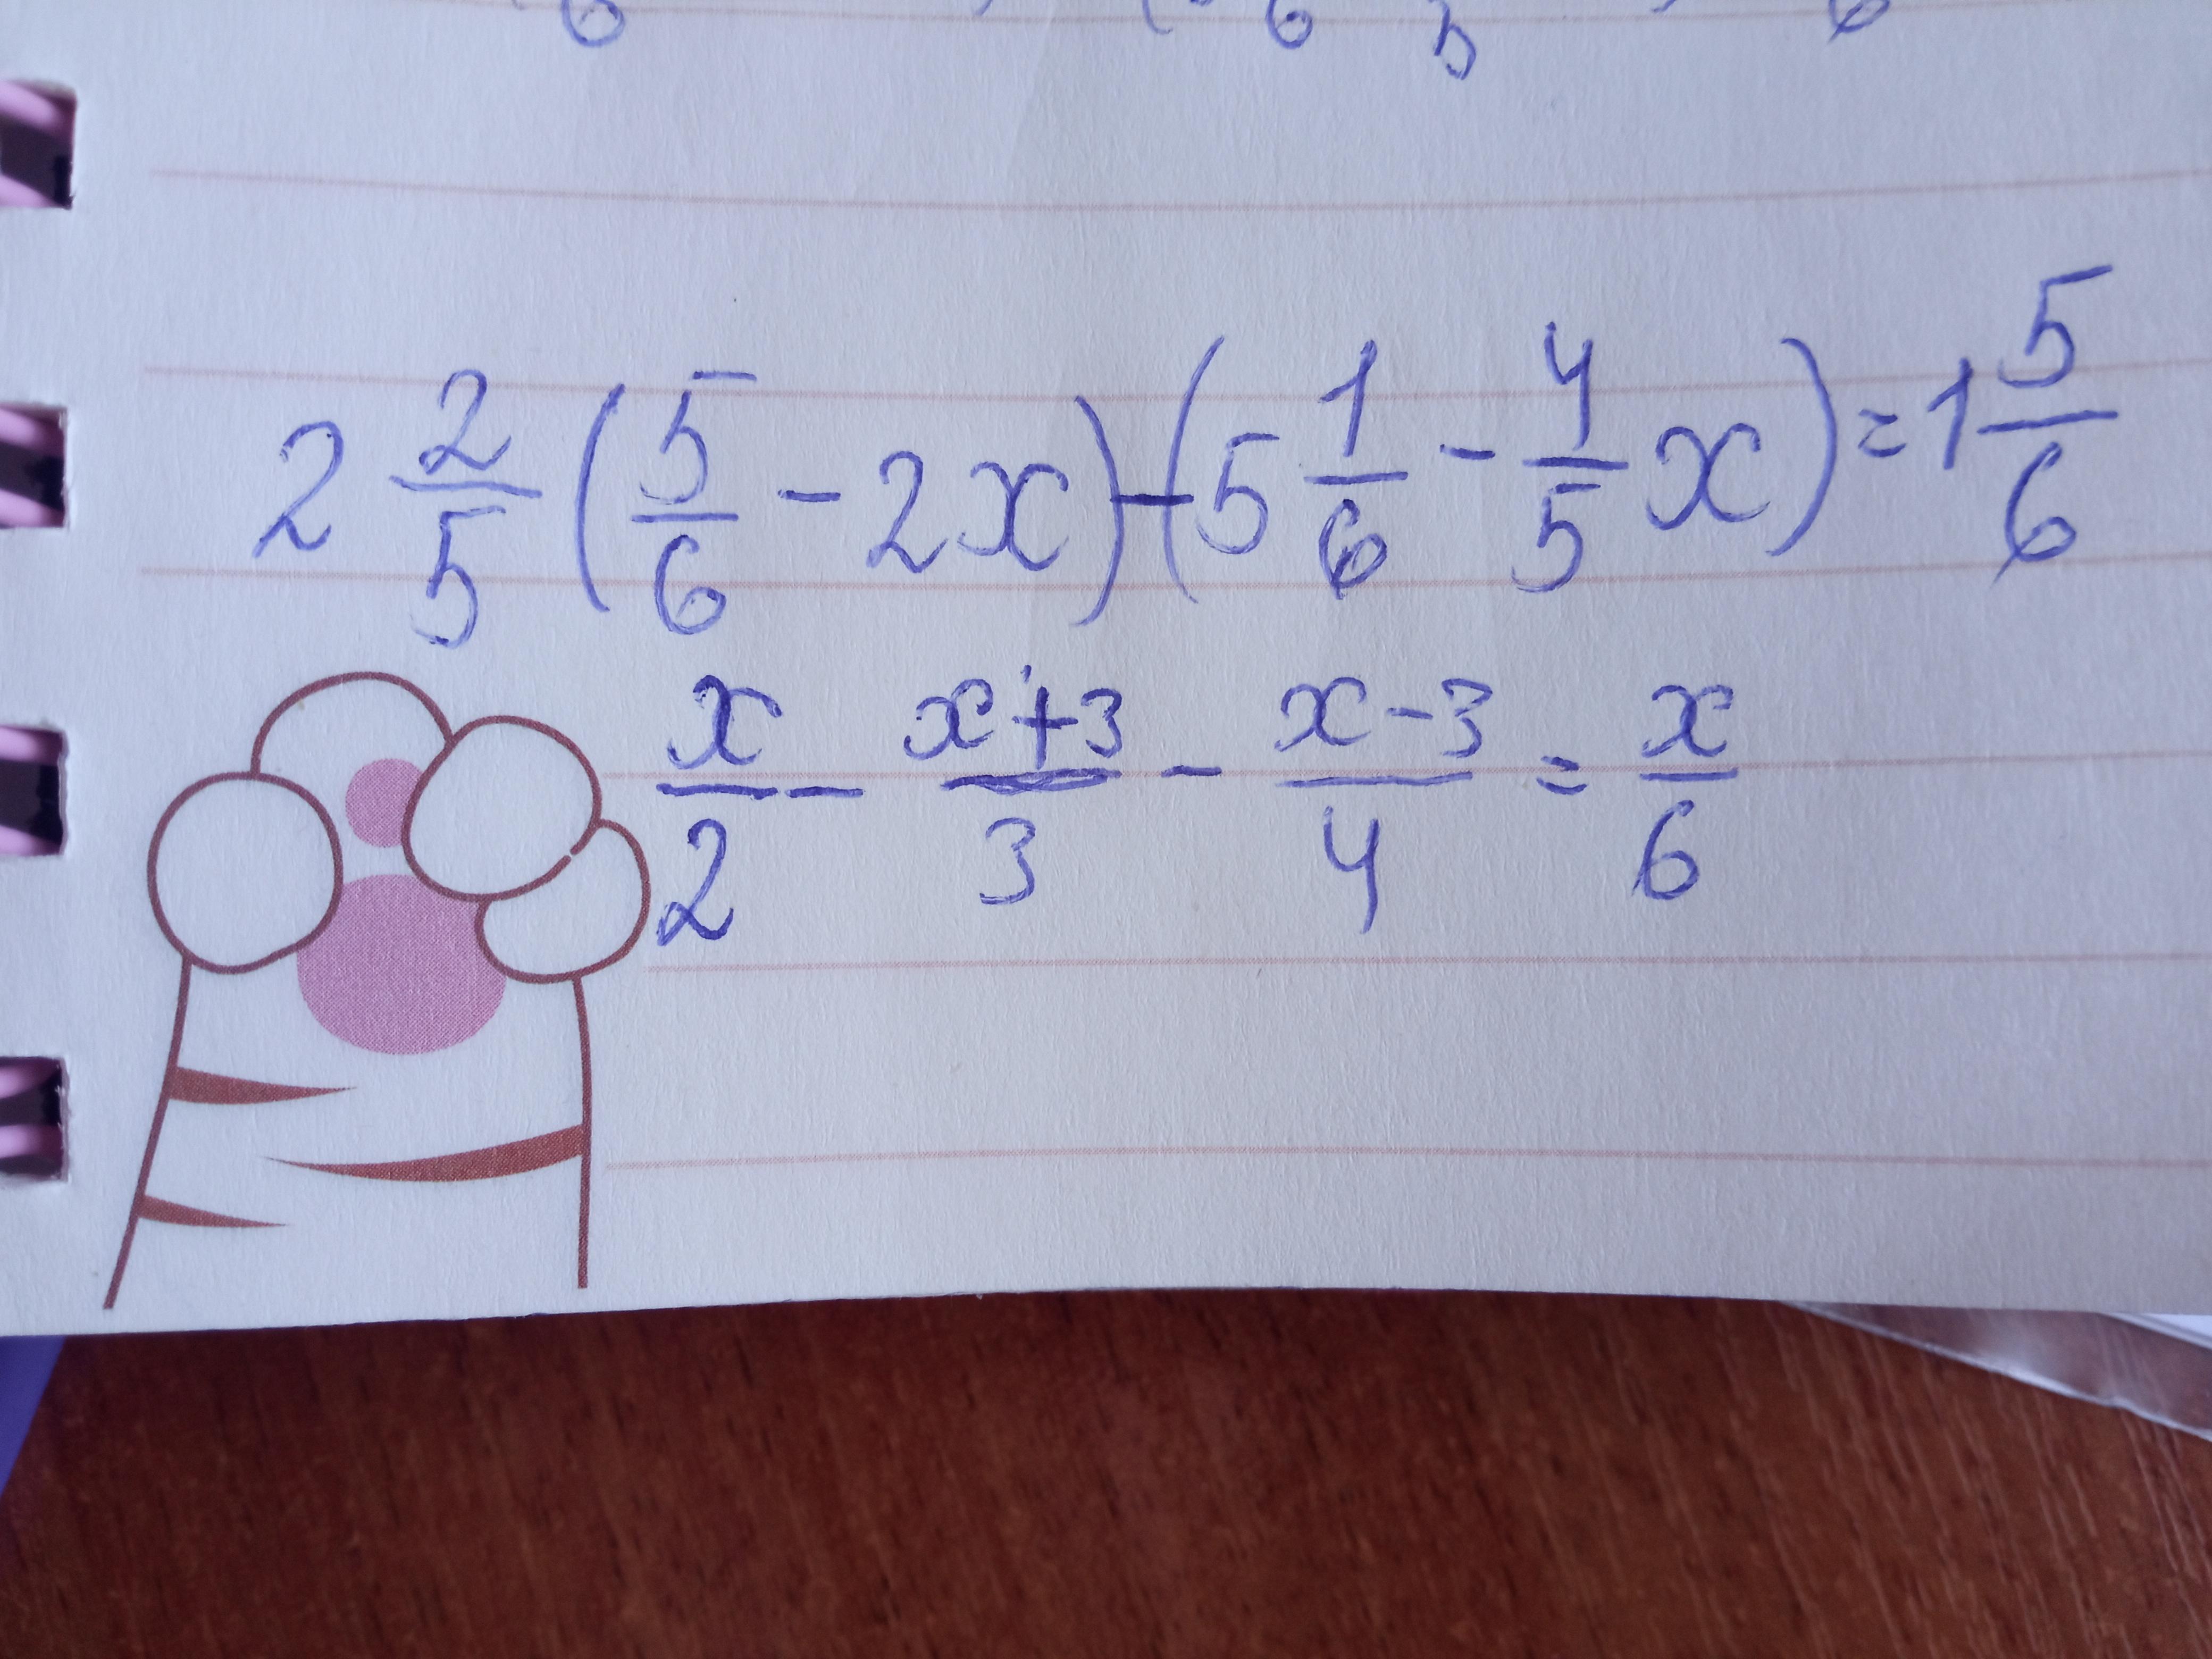 2 2/5 (5/6 - 2x) - (5 1/6 - 4/5 x) = 1 5/6
x/2 - x+3/3 - x-3/4 = x/6